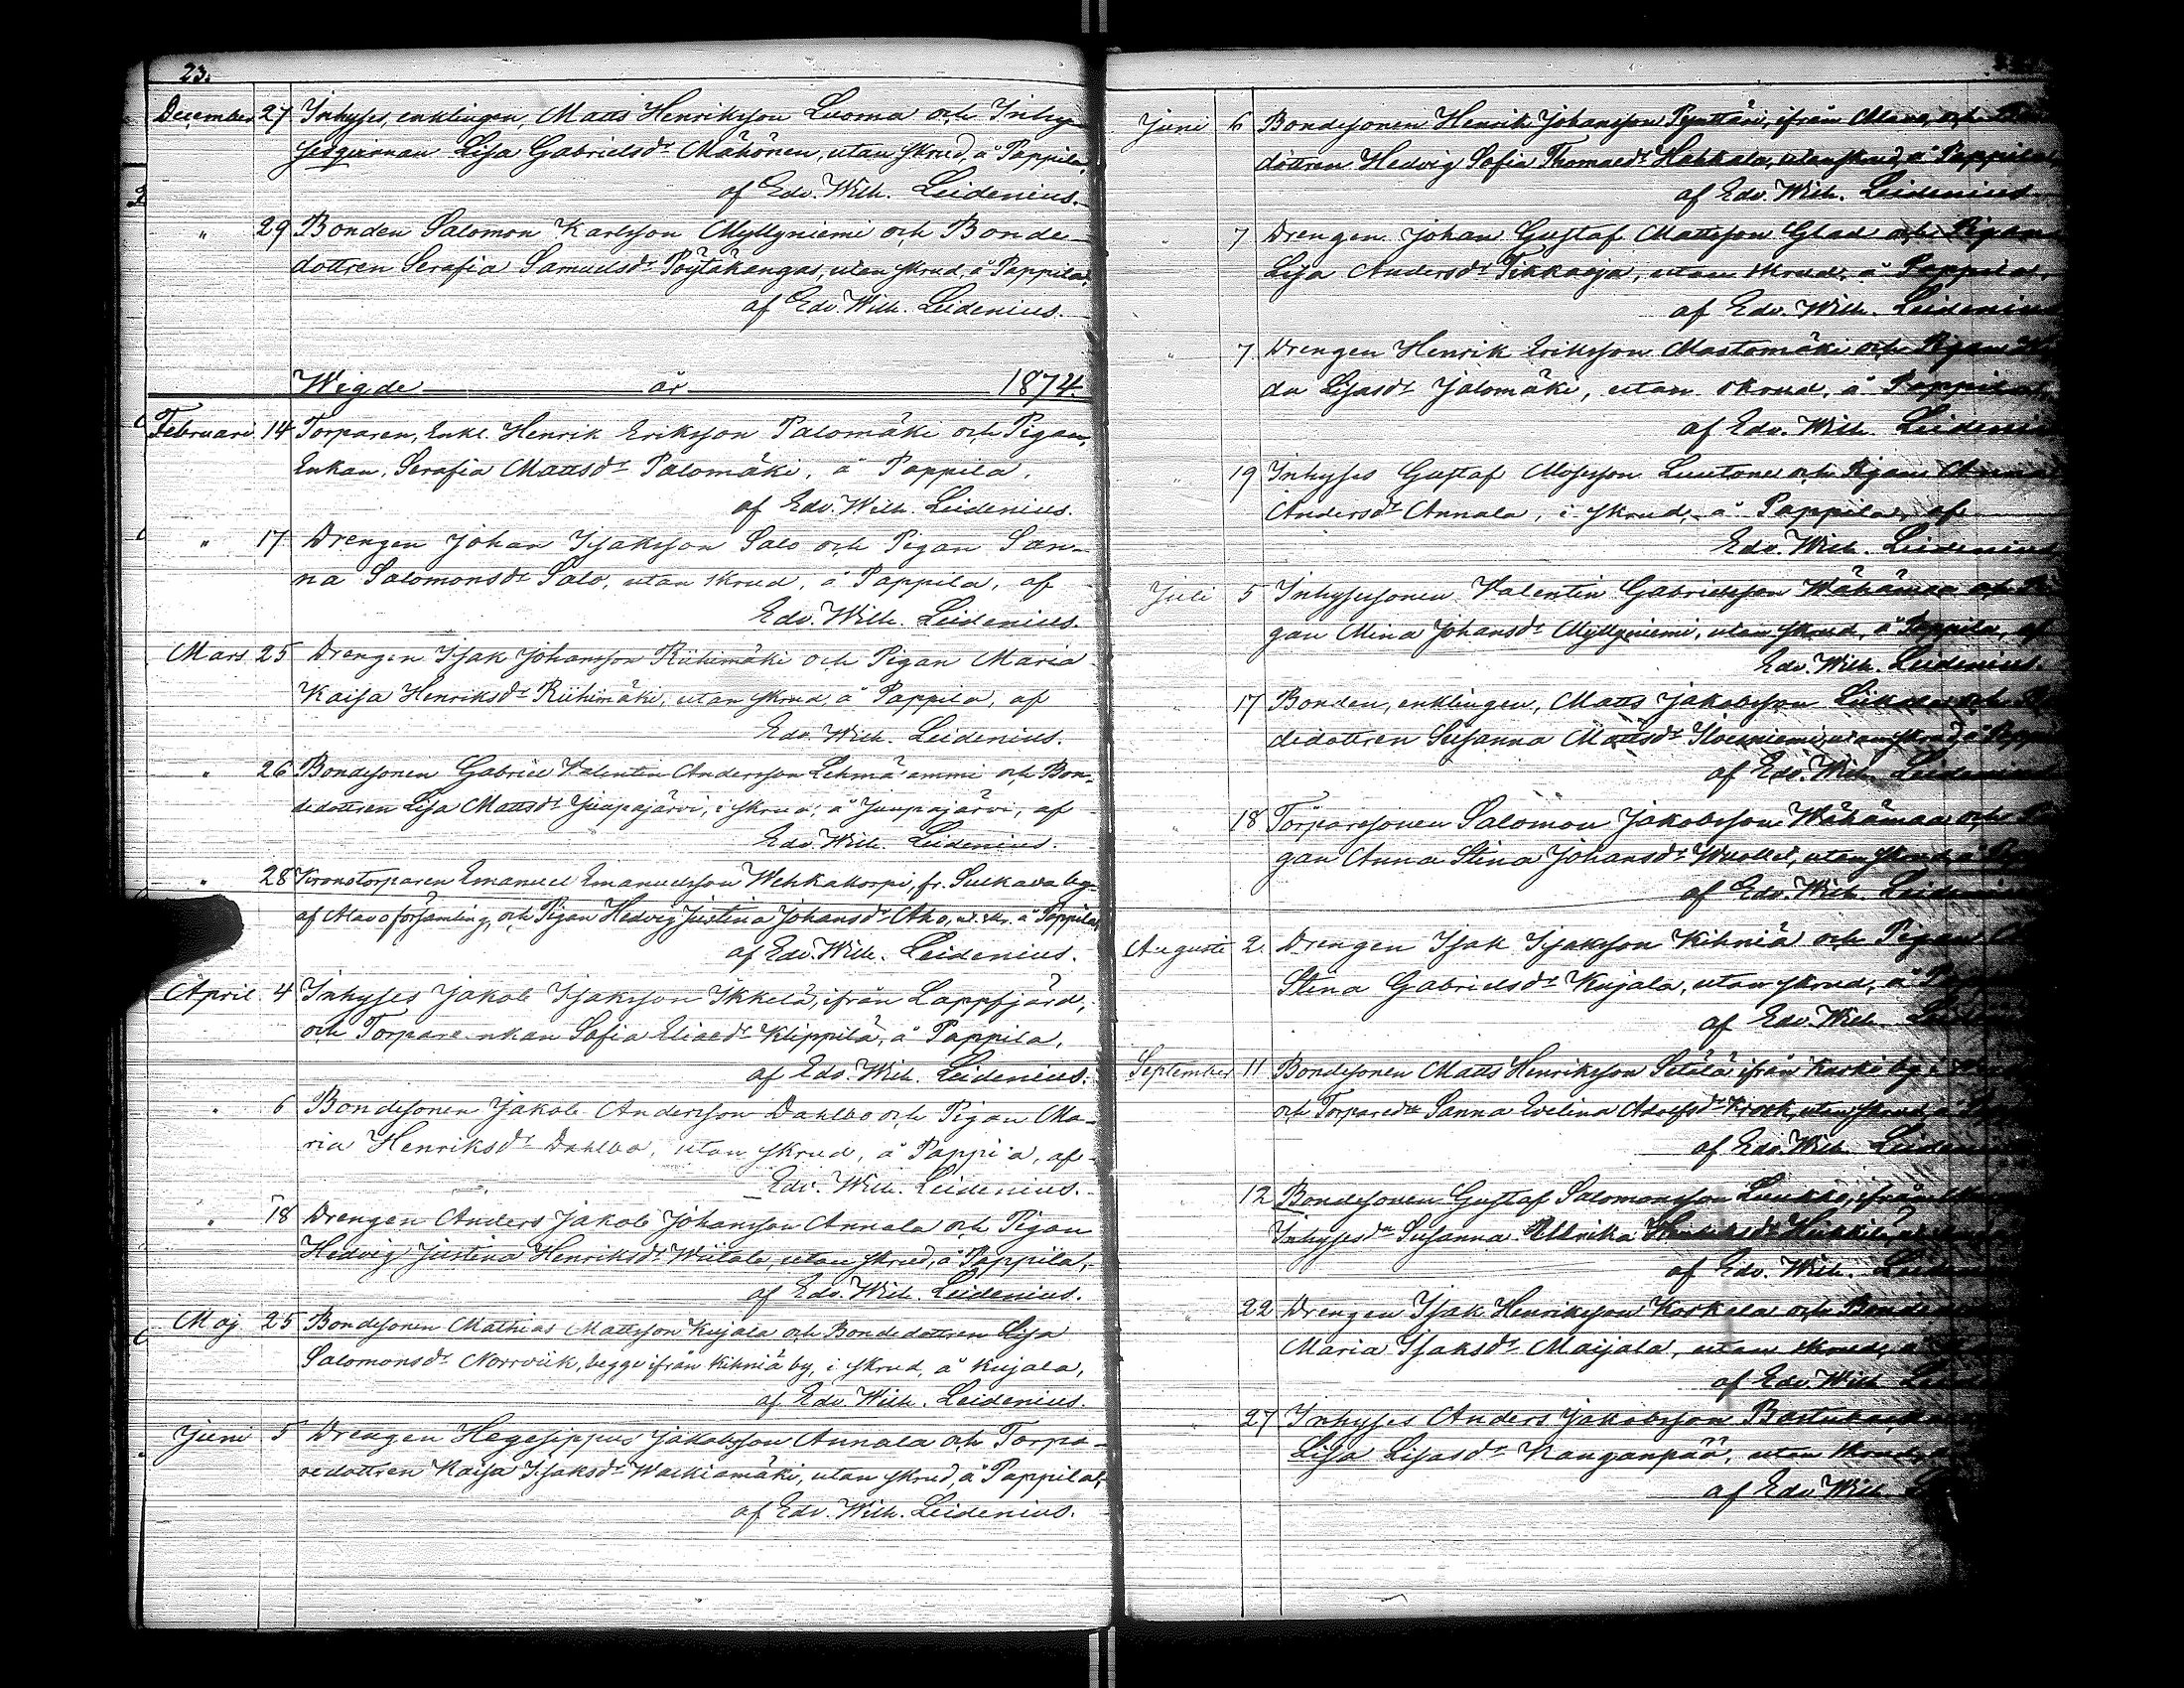 23.
December 27 Inhyses, enklingen, Matts Henriksson Luoma och Inhy-
sesqvinnan Lisa Gabrielsdr Mähönen, utan skrud, å Pappila,
af Edv. Wilh. Leidenius.
" 29 Bonden Salomon Karlsson Myllyniemi och Bonde-
dottren Serafia Samuelsdr Pöytäkangas, utan skrud, å Pappila,
af Edv. Wilh. Leidenius.
Wigde år 1874.
Februari 14 Torparen, Enkl. Henrik Eriksson Palomäki och Pigan,
Enkan, Serafia Mattsdr Palomäki, å Pappila,
af Edv. Wilh. Leidenius.
" 17 Drengen Johan Isaksson Salo och Pigan San-
na Salomonsdr Salo, utan skrud, å Pappila, af
Edv. Wilh. Leidenius.
Mars 25 Drengen Isak Johansson Riihimäki och Pigan Maria
Kaisa Henriksdr Riihimäki, utan skrud, å Pappila, af
Edv. Wilh. Leidenius.
" 26 Bondesonen Gabriel Valentin Andersson Lehmä'ammi och Bon-
dedottren Lisa Mattsdr Juupajärvi, i skrud, å Juupajärvi, af
Edv. Wilh. Leidenius.
" 28 Kronotorparen Emanuel Emanuelsson Wehkakorpi, fr. Sulkava by
af Alavo församling, och Pigan Hedvig Justina Johansdr Aho, u. skr. å Pappila,
af Edv. Wilh. Leidenius.
April 4 Inhyses Jakob Isaksson Ikkelä, ifrån Lappfjärd,
och Torpare nkan Sofia Eliaedr Klippilä, å Pappila,
af Edv. Wilh. Leidenius.
" 6 Bondesonen Jakob Andersson Dahlbo och Pigan Ma-
ria Henriksdr Dahlbo, utan skrud, å Pappi a, af
Edv. Wilh. Leidenius.
" 18 Drengen Anders Jakob Johansson Annala och Pigan
Hedvig Justina Henriksdr Wiitala, utan skrud, å Pappila,
af Edv. Wilh. Leidenius.
Maj 25 Bondesonen Mathias Mattsson Kujala och Bondedottren Lisa
Salomonsdr Norrvik, begge ifrån Kihniä by, i skrud, å Kujala,
af Edv. Wilh. Leidenius.
Juni 5 Drengen Hegesippus Jakobsson Annala och Torpa-
redottren Kaisa Isaksdr Walkiamäki, utan skrud, å Pappila,
af Edv. Wilh. Leidenius.
Juni 6 Bondesonen Henrik Johansson Pynttäri, ifrån Alavo, och
dottren Hedvig Sofia Thomaedr Hakkala, utan skrud, å Pappila
af Edv. Wilh. Leidenius
" 7 Drengen Johan Gustaf Mattsson Glad och Pigan
Lisa Andersdr Tikkaoja, utan skrud, å Pappila,
af Edv. Wilh. Leidenius
" 7 Drengen Henrik Eriksson Mastomäki och Pigan
da Lisasdr Jalomäki, utan skrud, å Pappila,
af Edv. Wilh. Leidenius
" 19 Inhyses Gustaf Mosesson Luutonen och Pigan Anna
Andersdr Annala, i skrud, å Pappila, af
Edv. Wilh. Leidenius
Juli 5 Inhysesonen Valentin Gabrielsson Wähämaa och Pi
gan Mina Johansdr Myllyniemi, utan skrud, å Pappila, af
Edv. Wilh. Leidenius.
17 Bonden, enklingen, Matts Jakobsson Liikala och
dedottren Susanna Mattsdr Ilvesniemi, utan skrud, å
af Edv. Wilh. Leidenius
" 18 Torparesonen Salomon Jakobsson Wähämaa och Pi
gan Anna Stina Johansdr Wuollet, utan skrud, å
af Edv. Wilh. Leidenius
Augusti 2. Drengen Isak Isaksson Kihniä och Pigan
Stina Gabrielsdr Kujala, utan skrud, å
af Edv. Wilh.
September 11 Bondesonen Matts Henriksson Setälä ifrån Karkis by i
och Torparedtr Sanna Evelina Adolfsdr Krook, utan skrud, å
af Edv. Wilh. Leidenius
12 Bondesonen Gustaf Salomonsson Luukko, ifrån
Inhysesdtr Susanna Ullrika Henriksdr Heikkilä,
af Edv. Wilh.
" 22 Drengen Isak Henriksson Koskela och
Maria Isaksdr Maijala, utan skrud,
af Edv. Wilh
" 27 Inhyses Anders Jakobsson
Lisa Lisasdr Kanganpää, utan skrud,
af Edv. Wilh